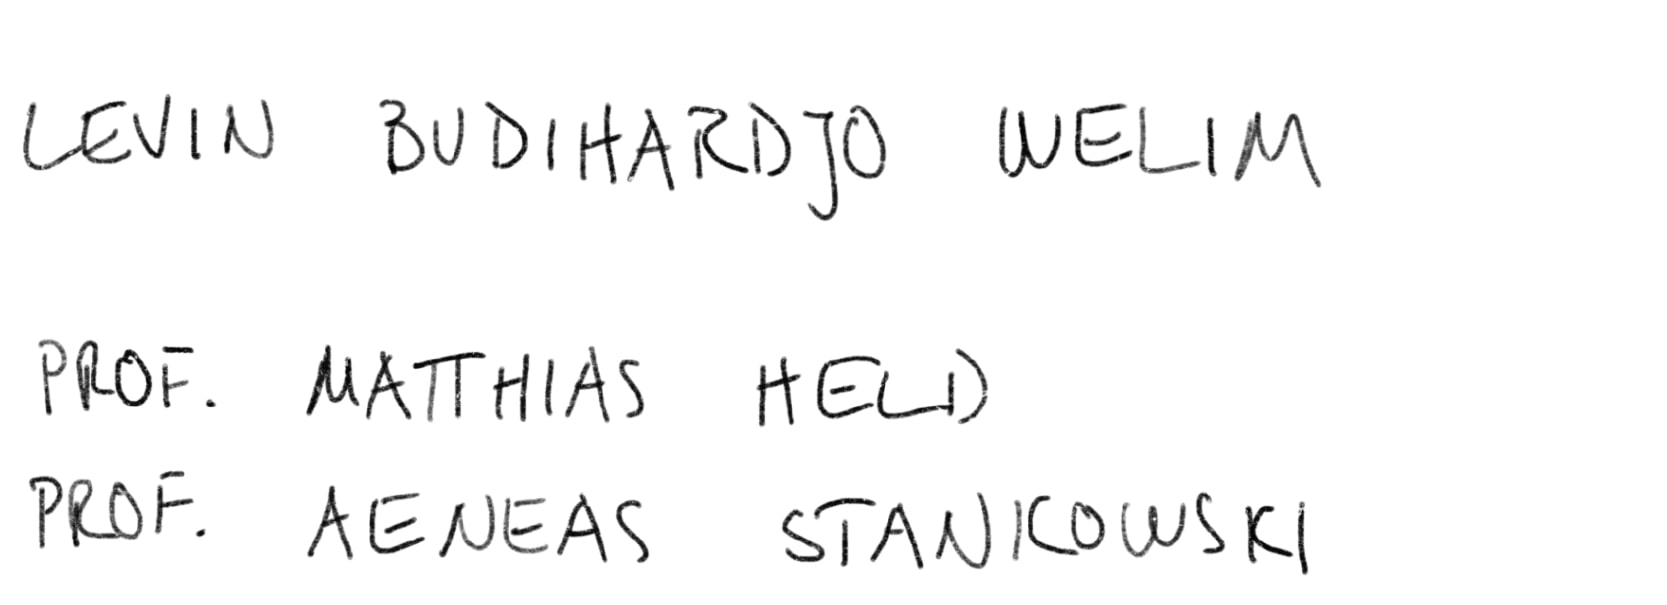 LEVIN BUDIHARDJO WELIM
PROF. MATTHIAS HELD
PROF. AENEAS STANKOWSKI